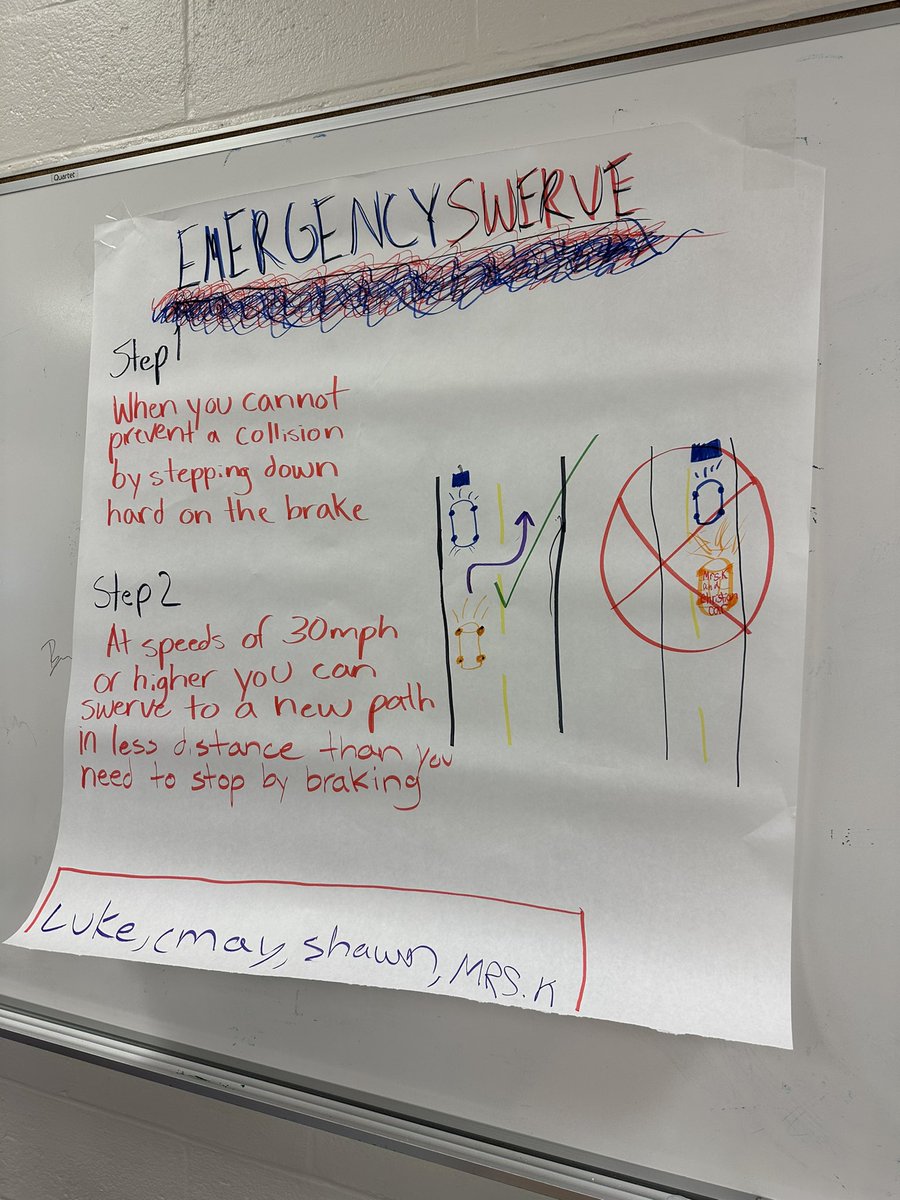 Quartet
EMERGENCY SWERVE
Step 1
When you cannot
prevent a collision
by stepping down
hard on the brake
Step 2
At speeds of 30mph
or higher you can
swerve to a new path
in less distance than you
need to stop by braking
Mrs.K
and
Christian
Car
Luke, cmay, shawn, MRS. K